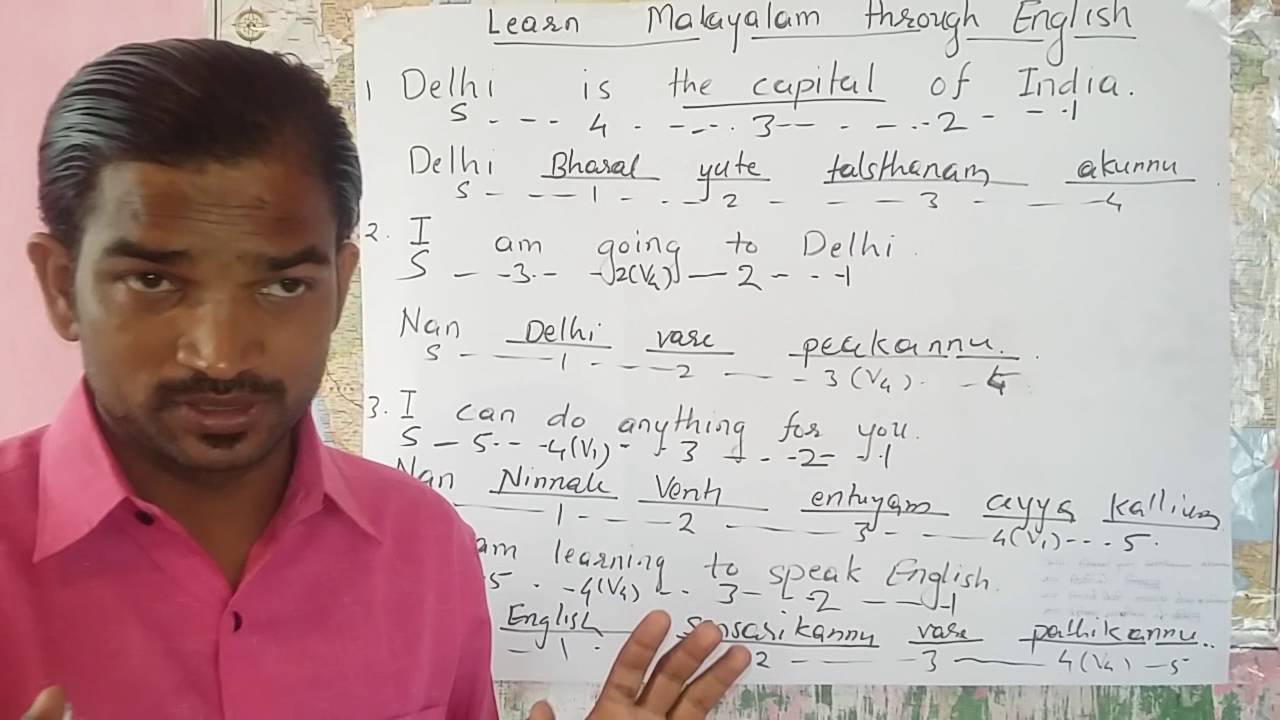 Learn Malayalam through English
1 Delhi is the capital of India.
S - - - 4 - - - - 3 - - - - - 2 - - - 1
Delhi Bharal yute talsthanam akunnu.
S - - - 1 - - - 2 - - - 3 - - - 4
2. I am going to Delhi.
S - - 3 - - 2(V4) - 2 - - - 1
Nan Delhi vare peakannu.
S - - 1 - - - 2 - - - 3 (V4). - 5
3. I can do anything for you.
S - 5 - - - 4(V1) - - 3 - - - 2 - - 1
Nan Ninnak Venh entuyam cayya kallium
1 - - - 2 - - - 3 - - - 4(V1) - - - 5.
am learning to speak English.
5 - - 4(V4) - - 3 - - 2 - - - 1
English sikannu vare pathikannu..
- 1 - 2 - - - 3 - - - 4(V4) - 5